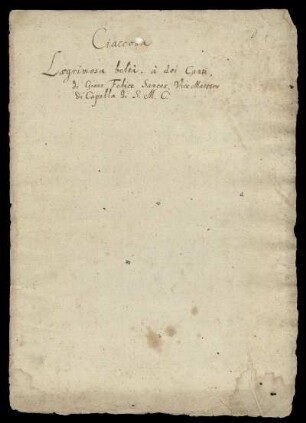 Ciaccona
Lagrimosa beltà. à doi Canti.
di Giovan Felice Sances. Vice Maestro
di Capella di S. M. C.